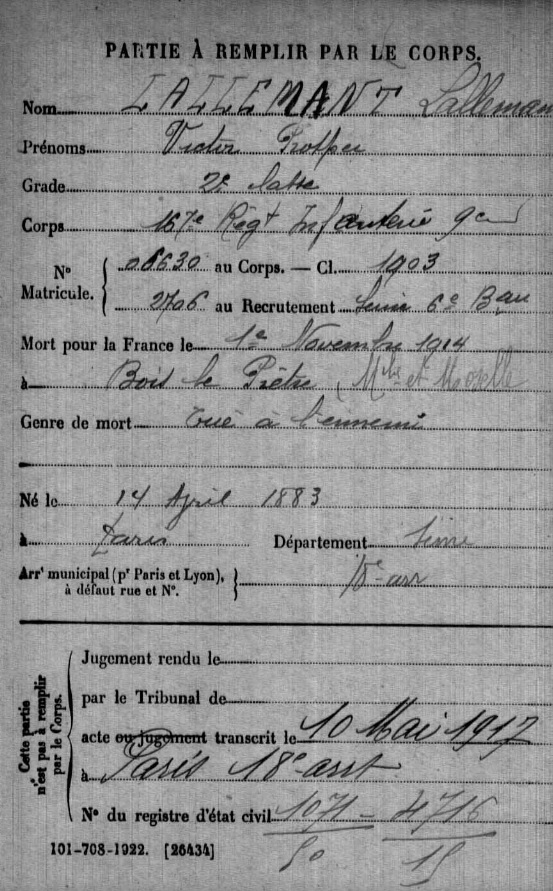 PARTIE À REMPLIR PAR LE CORPS.
Nom LALLEMANT Lalleman
Prénoms Victor Prosper
Grade 2e classe
Corps 167e Régt Infanterie
N° Matricule. 06630 au Corps. — Cl. 1903
2706 au Recrutement Seine 6e Bau
Mort pour la France le 1e Novembre 1914
à Bois le Prêtre (Mthe et Moselle
Genre de mort tué à l'ennemi
Né le 14 April 1883
à Paris Département Seine
Arrt municipal (pr Paris et Lyon), à défaut rue et N°. arr
Cette partie n'est pas à remplir par le Corps.
Jugement rendu le
par le Tribunal de
acte ou jugement transcrit le 10 Mai 1917
à Paris 18e arrt
N° du registre d'état civil 1071 - 4716
50 15
101-708-1922. [26434]